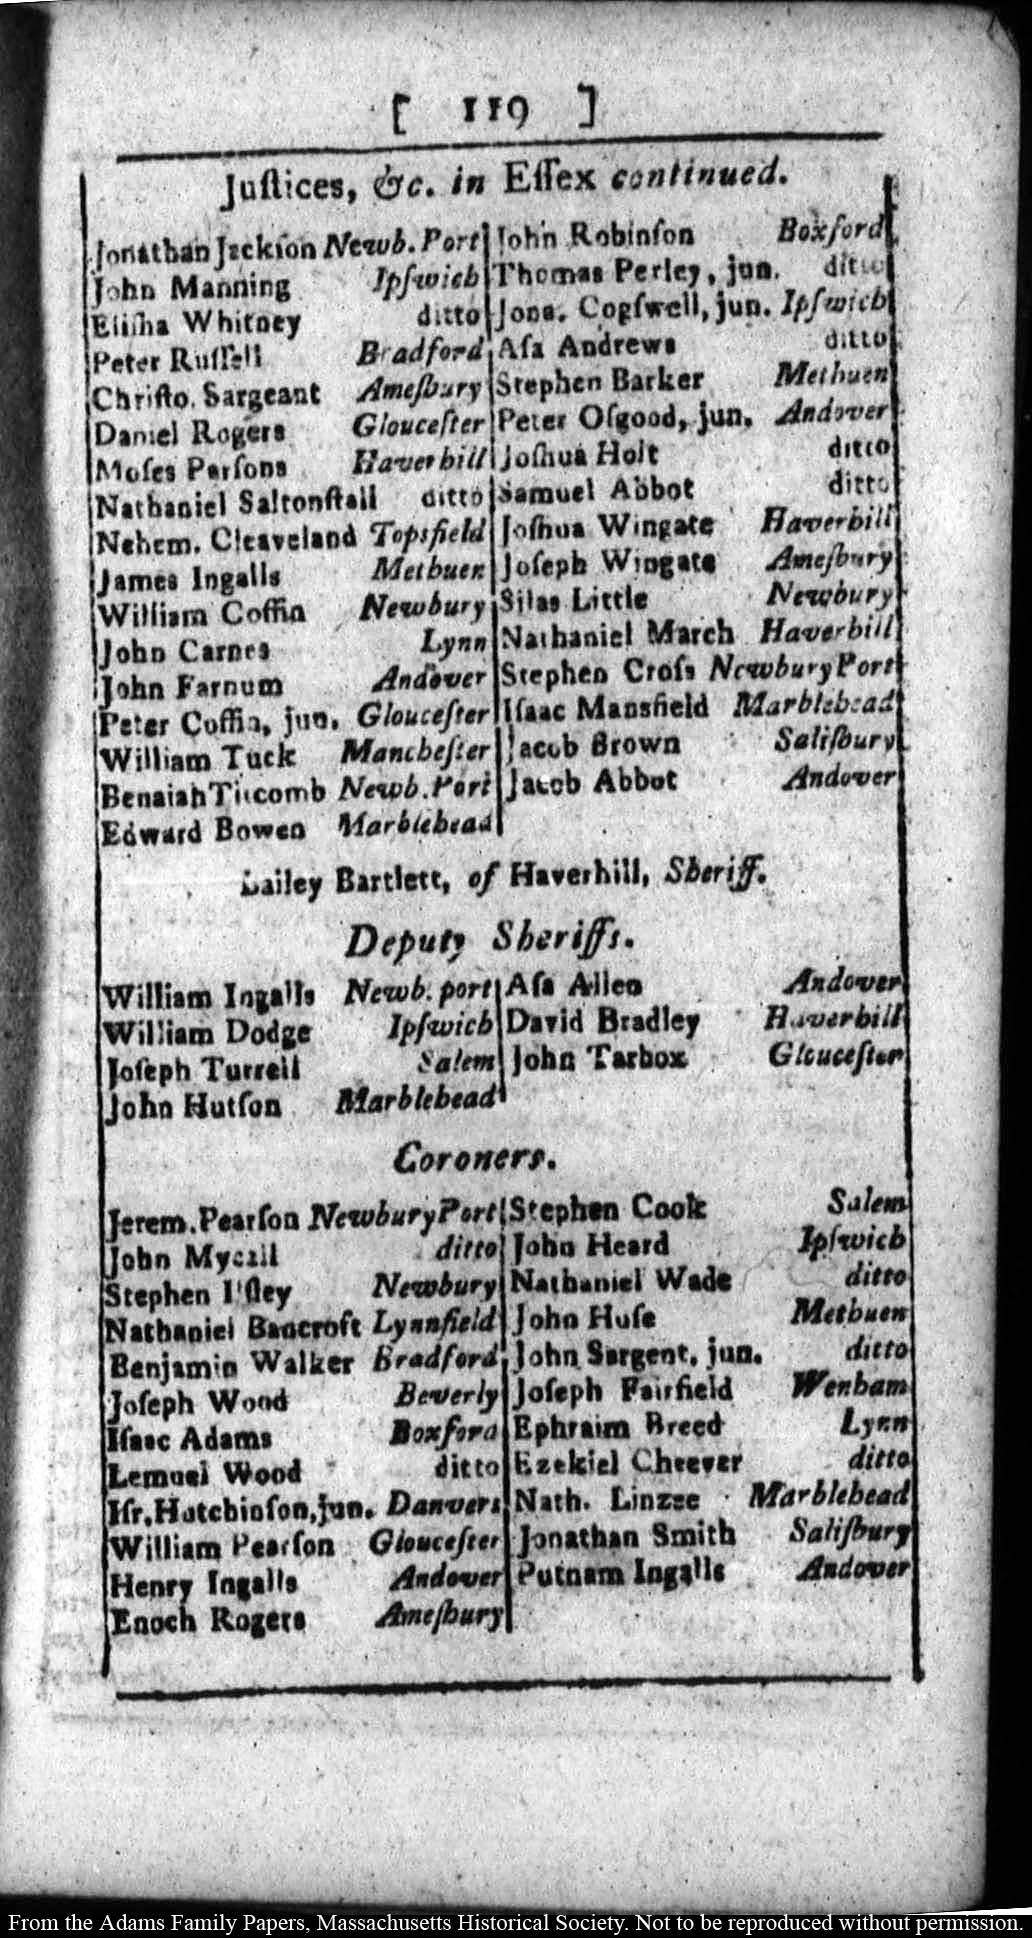 [ 119 ]
Juſtices, &c. in Eſſex continued.
Jonathan Jackson Newb. Port
John Manning Ipſwich
Eliſha Whitney ditto
Peter Ruſſell Bradford
Chriſto. Sargeant Ameſbury
Daniel Rogers Glouceſter
Moſes Parſons Haverhill
Nathaniel Saltonſtall ditto
Nehem. Cleaveland Topsfield
James Ingalls Methuen
William Coffin Newbury
John Carnes Lynn
John Farnum Andover
Peter Coffin, jun. Glouceſter
William Tuck Mancheſter
Benaiah Titcomb Newb. Port
Edward Bowen Marblehead
John Robinſon Boxford
Thomas Perley, jun. ditto
Jona. Cogſwell, jun. Ipſwich
Aſa Andrews ditto
Stephen Barker Methuen
Peter Oſgood, jun. Andover
Joſhua Holt ditto
Samuel Abbot ditto
Joſhua Wingate Haverhill
Joſeph Wingate Ameſbury
Silas Little Newbury
Nathaniel March Haverhill
Stephen Croſs Newbury Port
Iſaac Mansfield Marblehead
Jacob Brown Saliſbury
Jacob Abbot Andover
Bailey Bartlett, of Haverhill, Sheriff.
Deputy Sheriffs.
William Ingalls Newb. port
William Dodge Ipſwich
Joſeph Turrell Salem
John Hutſon Marblehead
Aſa Allen Andover
David Bradley Haverhill
John Tarbox Glouceſter
Coroners.
Jerem. Pearſon Newbury Port
John Mycall ditto
Stephen Ilſley Newbury
Nathaniel Bancroft Lynnfield
Benjamin Walker Bradford
Joſeph Wood Beverly
Iſaac Adams Boxford
Lemuel Wood ditto
Iſr. Hutchinſon, jun. Danvers
William Pearſon Glouceſter
Henry Ingalls Andover
Enoch Rogers Ameſbury
Stephen Cook Salem
John Heard Ipſwich
Nathaniel Wade ditto
John Huſe Methuen
John Sargent, jun. ditto
Joſeph Fairfield Wenham
Ephraim Breed Lynn
Ezekiel Cheever ditto
Nath. Linzee Marblehead
Jonathan Smith Saliſbury
Putnam Ingalls Andover
From the Adams Family Papers, Massachusetts Historical Society. Not to be reproduced without permission.